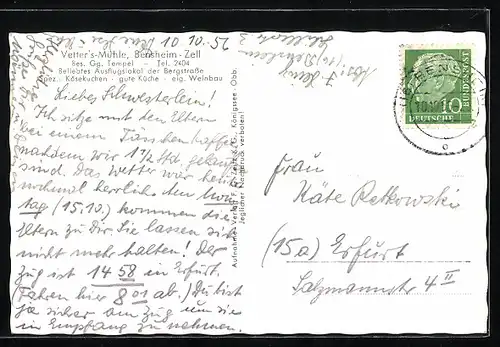 10.10.56
Vetter's-Mühle, Bensheim-Zell
Bes. Gg. Tempel - Tel. 2404
Beliebtes Ausflugslokal der Bergstraße
Spez. Käsekuchen · gute Küche · eig. Weinbau
Liebes Schwesterlein!
Ich sitze mit den Eltern
bei einem Tässchen Kaffee
nachdem wir 1½ Std. gelaufen
sind. Das Wetter war heute
nochmal herrlich. Am Mon
tag (15.10.) kommen die
Eltern zu Dir. Sie lassen sich
nicht mehr halten! Der
Zug ist 14 58 in Erfurt.
(Fahren hier 8 01 ab.) Du bist
ja sicher am Zug um sie
in Empfang zu nehmen.
Aufnahme u. Verlag
Königssee · Obb.
Jeglicher Nachdruck verboten!
BENSHEIM
10
DEUTSCHE
BUNDESPOST
Frau
Käte Retkowski
(15a) Erfurt
Salzmannstr. 4 II